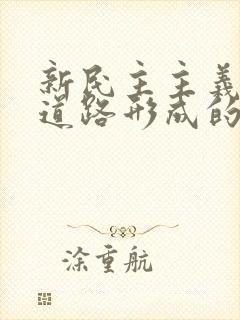 新民主主义
道路形成的
涂重航